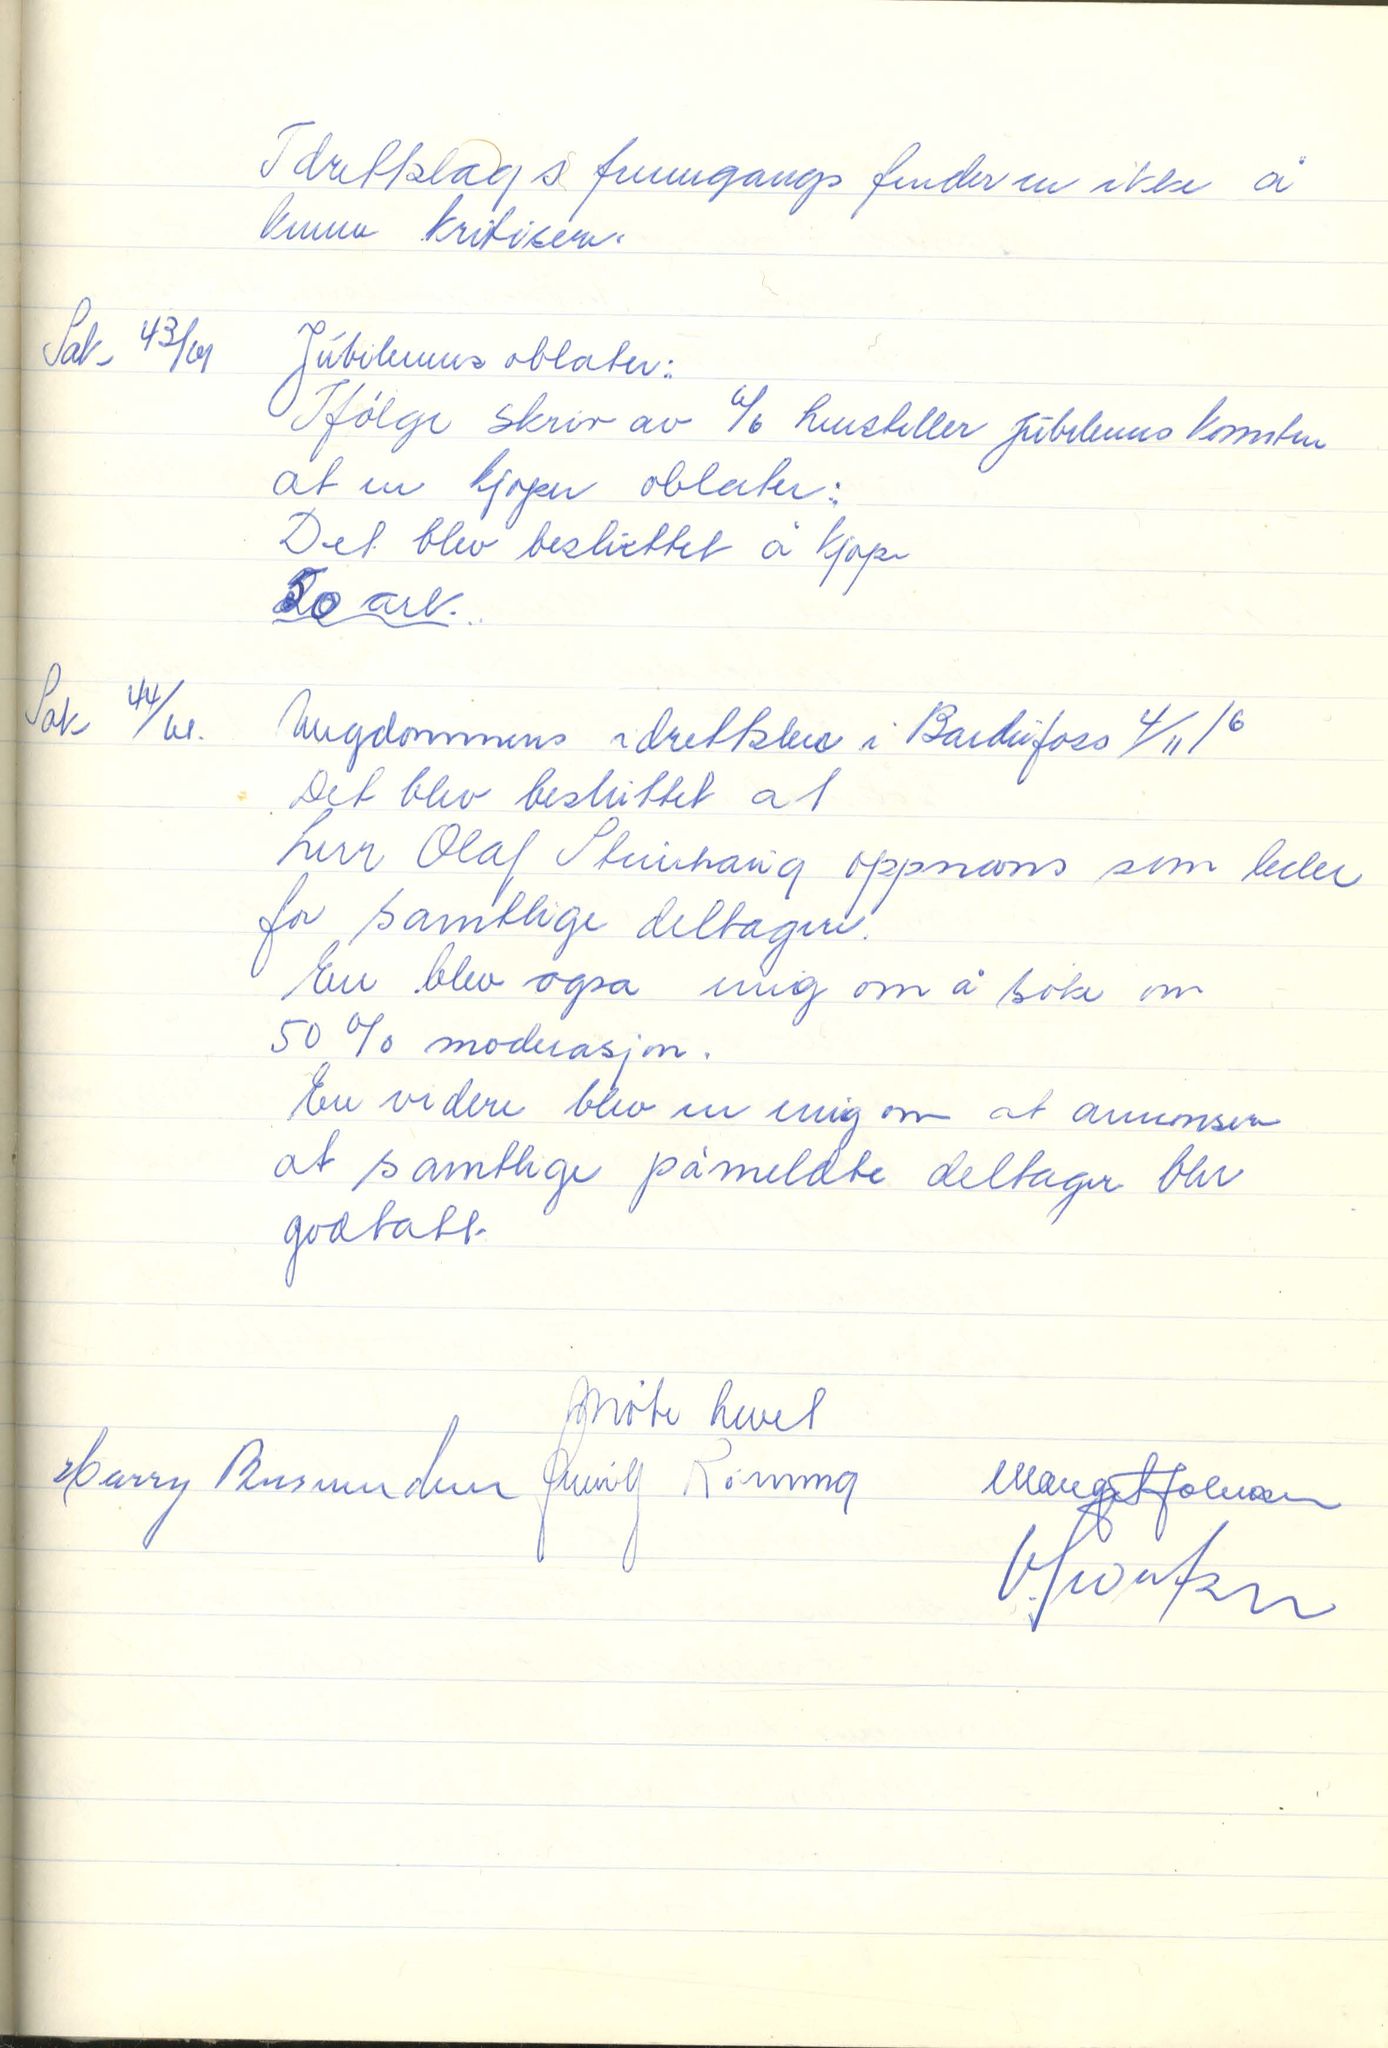 Idrettslags fremgangs finder en ikke å
kunne kritisere.
Sak 43/61 Jubileums oblater:
Ifølge skriv av 6/6 henstiller Jubileums komiteen
at en kjøper oblater:
Det blev besluttet å kjøpe
50 ark.
Sak 44/61. Ungdommens idrettsleir i Bardufoss 4/11/6
Det blev besluttet at
herr Olaf Steinhaug oppnevns som leder
for samtlige deltagere.
En blev også enig om å søke om
50 % moderasjon.
En videre blev en enig om at annonsere
at samtlige påmeldte deltager blir
godtatt.
Møte hevet
Harry Rønning Margit Johansen